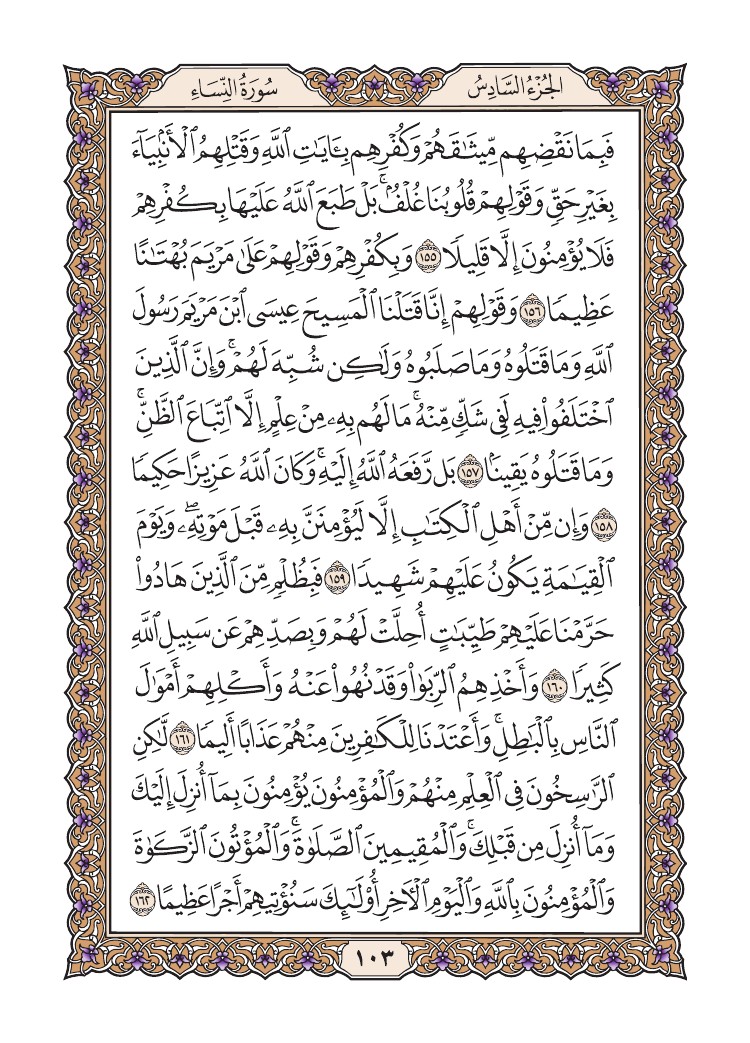 الجُزْءُ السَّادِسُ
سُورَةُ النِّسَاءِ
فَبِمَا نَقْضِهِم مِّيثَٰقَهُمْ وَكُفْرِهِم بِـَٔايَٰتِ ٱللَّهِ وَقَتْلِهِمُ ٱلْأَنۢبِيَآءَ
بِغَيْرِ حَقٍّ وَقَوْلِهِمْ قُلُوبُنَا غُلْفٌۢ ۚ بَلْ طَبَعَ ٱللَّهُ عَلَيْهَا بِكُفْرِهِمْ
فَلَا يُؤْمِنُونَ إِلَّا قَلِيلًا ١٥٥ وَبِكُفْرِهِمْ وَقَوْلِهِمْ عَلَىٰ مَرْيَمَ بُهْتَٰنًا
عَظِيمًا ١٥٦ وَقَوْلِهِمْ إِنَّا قَتَلْنَا ٱلْمَسِيحَ عِيسَى ٱبْنَ مَرْيَمَ رَسُولَ
ٱللَّهِ وَمَا قَتَلُوهُ وَمَا صَلَبُوهُ وَلَٰكِن شُبِّهَ لَهُمْ ۚ وَإِنَّ ٱلَّذِينَ
ٱخْتَلَفُوا۟ فِيهِ لَفِى شَكٍّ مِّنْهُ ۚ مَا لَهُم بِهِۦ مِنْ عِلْمٍ إِلَّا ٱتِّبَاعَ ٱلظَّنِّ ۚ
وَمَا قَتَلُوهُ يَقِينًۢا ١٥٧ بَل رَّفَعَهُ ٱللَّهُ إِلَيْهِ ۚ وَكَانَ ٱللَّهُ عَزِيزًا حَكِيمًا
١٥٨ وَإِن مِّنْ أَهْلِ ٱلْكِتَٰبِ إِلَّا لَيُؤْمِنَنَّ بِهِۦ قَبْلَ مَوْتِهِۦ ۖ وَيَوْمَ
ٱلْقِيَٰمَةِ يَكُونُ عَلَيْهِمْ شَهِيدًا ١٥٩ فَبِظُلْمٍ مِّنَ ٱلَّذِينَ هَادُوا۟
حَرَّمْنَا عَلَيْهِمْ طَيِّبَٰتٍ أُحِلَّتْ لَهُمْ وَبِصَدِّهِمْ عَن سَبِيلِ ٱللَّهِ
كَثِيرًا ١٦٠ وَأَخْذِهِمُ ٱلرِّبَوٰا۟ وَقَدْ نُهُوا۟ عَنْهُ وَأَكْلِهِمْ أَمْوَٰلَ
ٱلنَّاسِ بِٱلْبَٰطِلِ ۚ وَأَعْتَدْنَا لِلْكَٰفِرِينَ مِنْهُمْ عَذَابًا أَلِيمًا ١٦١ لَّٰكِنِ
ٱلرَّٰسِخُونَ فِى ٱلْعِلْمِ مِنْهُمْ وَٱلْمُؤْمِنُونَ يُؤْمِنُونَ بِمَآ أُنزِلَ إِلَيْكَ
وَمَآ أُنزِلَ مِن قَبْلِكَ ۚ وَٱلْمُقِيمِينَ ٱلصَّلَوٰةَ ۚ وَٱلْمُؤْتُونَ ٱلزَّكَوٰةَ
وَٱلْمُؤْمِنُونَ بِٱللَّهِ وَٱلْيَوْمِ ٱلْءَاخِرِ أُو۟لَٰٓئِكَ سَنُؤْتِيهِمْ أَجْرًا عَظِيمًا ١٦٢
١٠٣